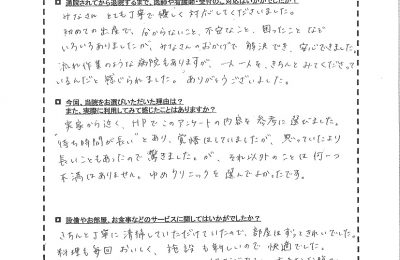 ■通院されてから退院するまで、医師や看護師・受付のご対応はいかがでしたか？
みなさん とても丁寧で優しく対応してくださいました。
初めての出産で、分からないこと、不安なこと、困ったことなど
いろいろありましたが、みなさんのおかげで 解決でき、安心できました。
流れ作業のような病院もありますが、一人一人を、きちんとみてくださって
いるんだと感じられました。ありがとうございました。
■今回、当院をお選びいただいた理由は？
また、実際に利用してみて感じたことはありますか？
実家から近く、HPでこのアンケートの内容を参考に選びました。
"待ち時間が長い"とあり、覚悟はしていましたが、思っていたより
長いこともあったので驚きました。が、それ以外のことは何一つ
不満はありません。ゆめクリニックを選んでよかったです。
■設備やお部屋、お食事などのサービスに関してはいかがでしたか？
きちんと丁寧に清掃していただけていたので、部屋はずっときれいでした。
料理も毎回おいしく、施設も新しいので快適でした。